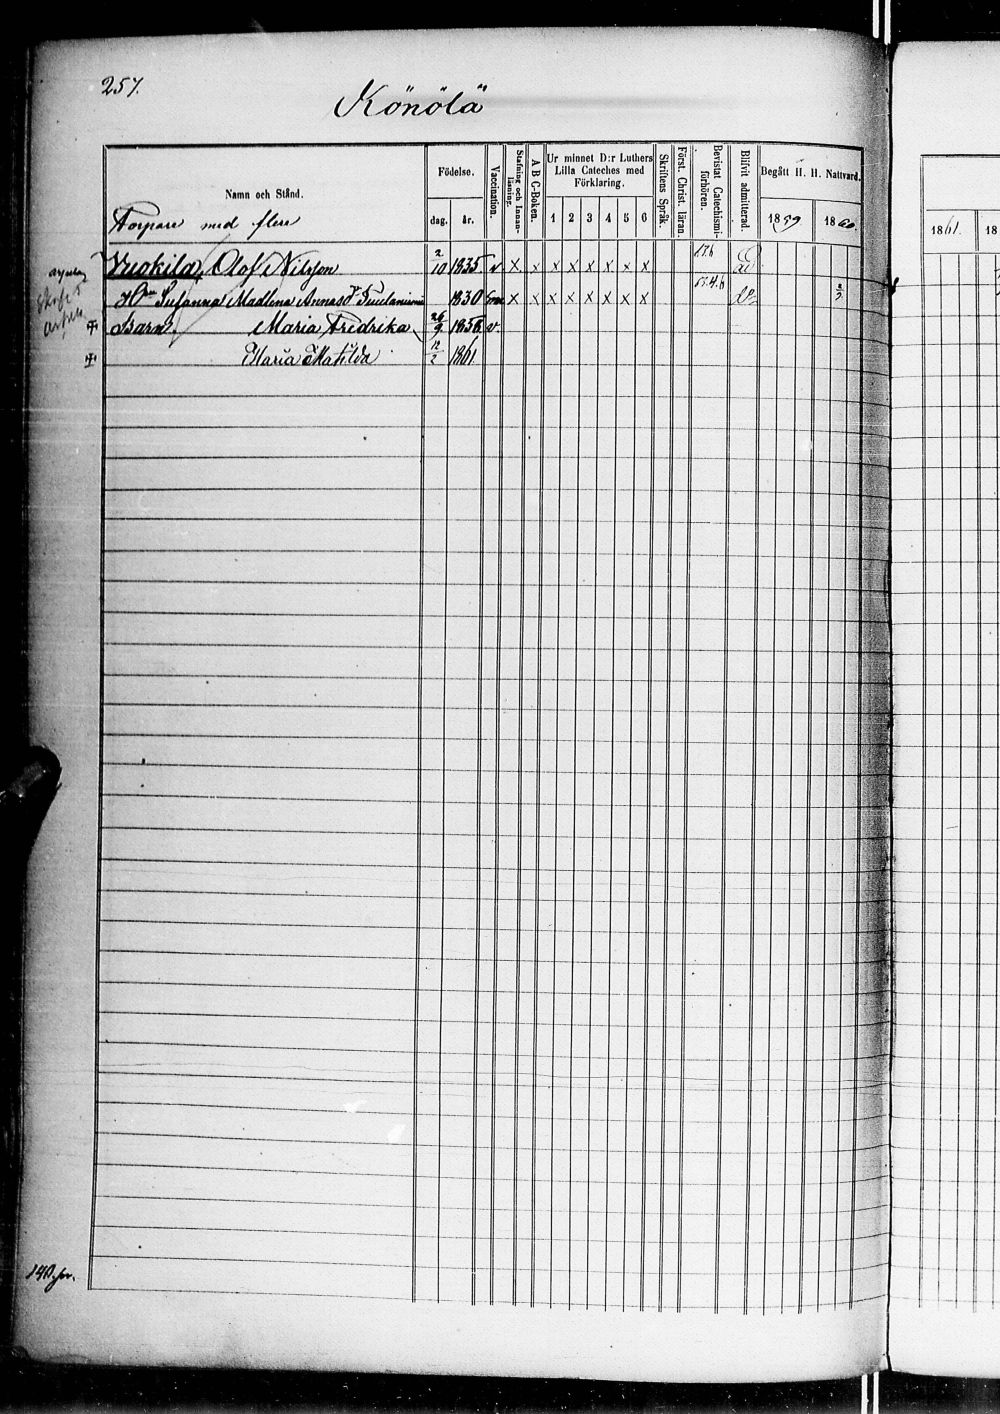 257.
Könölä
Namn och Stånd.
Födelse.
dag. år.
Vaccination.
Stafning och Innan-läsning.
A B C-Boken.
Ur minnet D:r Luthers Lilla Cateches med Förklaring.
1 2 3 4 5 6
Skriftens Språk.
Först. Christ. läran.
Bevistat Catechismi-förhören.
Blifvit admitterad.
Begått H. H. Nattvard.
1859 1860.
1861. 18
Torpare med flere
Vuokila, Olof Nilsson 2/10 1835 v x x x x x x x x
Hu Susanna Madlena Annasdr 1830 x x x x x x x x 2/9
Barn. Maria Fredrika 26/9 1856 v
Maria Matilda 12/2 1861.
140